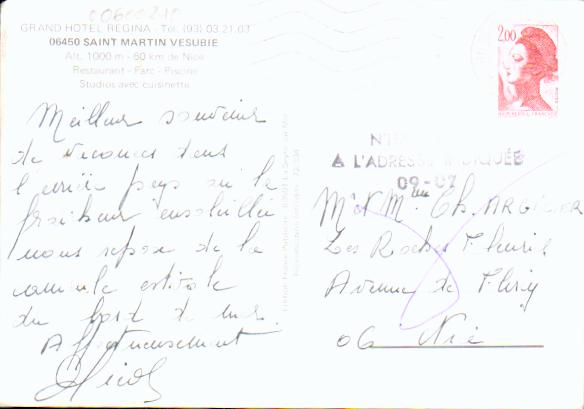 00600210
GRAND HOTEL REGINA - Tél. (93) 03.21.03
06450 SAINT MARTIN VESUBIE
Alt. 1000 m - 60 km de Nice
Restaurant - Parc - Piscine
Studios avec cuisinette
2,00
Meilleur souvenir
de vacances dans
l'arrière pays où la
fraîcheur ensoleillée
nous repose de la
canicule estivale
du bord de mer.
Affectueusement
A L'ADRESSE INDIQUÉE
09-07
Mr et Mme Ch. ARGELIER
Les Roches Fleuries
Avenue de
06 Nice